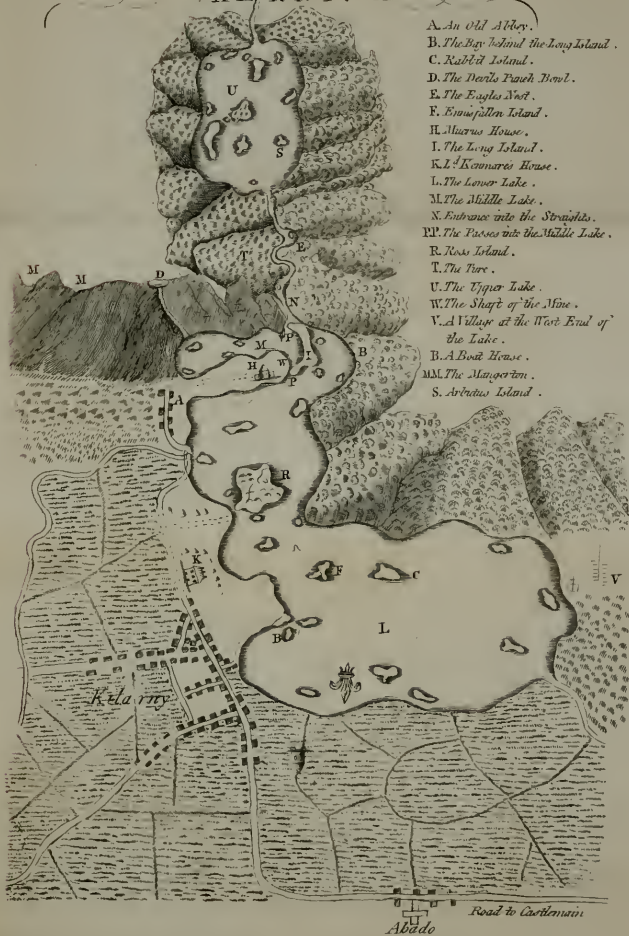 A. An Old Abbey.
B. The Bay behind the Long Island.
C. Rabbit Island.
D. The Devils Punch Bowl.
E. The Eagles Nest.
F. Ennisfallen Island.
H. Mucrus House.
I. The Long Island.
K. Ld. Kenmare's House.
L. The Lower Lake.
M. The Middle Lake.
N. Entrance into the Straights.
P.P. The Passes into the Middle Lake.
R. Ross Island.
T. The Turc.
U. The Upper Lake.
W. The Shaft of the Mine.
V. A Village at the West End of
the Lake.
B. A Boat House.
MM. The Mangerton.
S. Arbutus Island.
U
S
E
T
M
M
D
N
M
P
I
B
H
W
P
A
R
K
F
C
V
L
B
Kilarny
Road to Castlemain
Abado